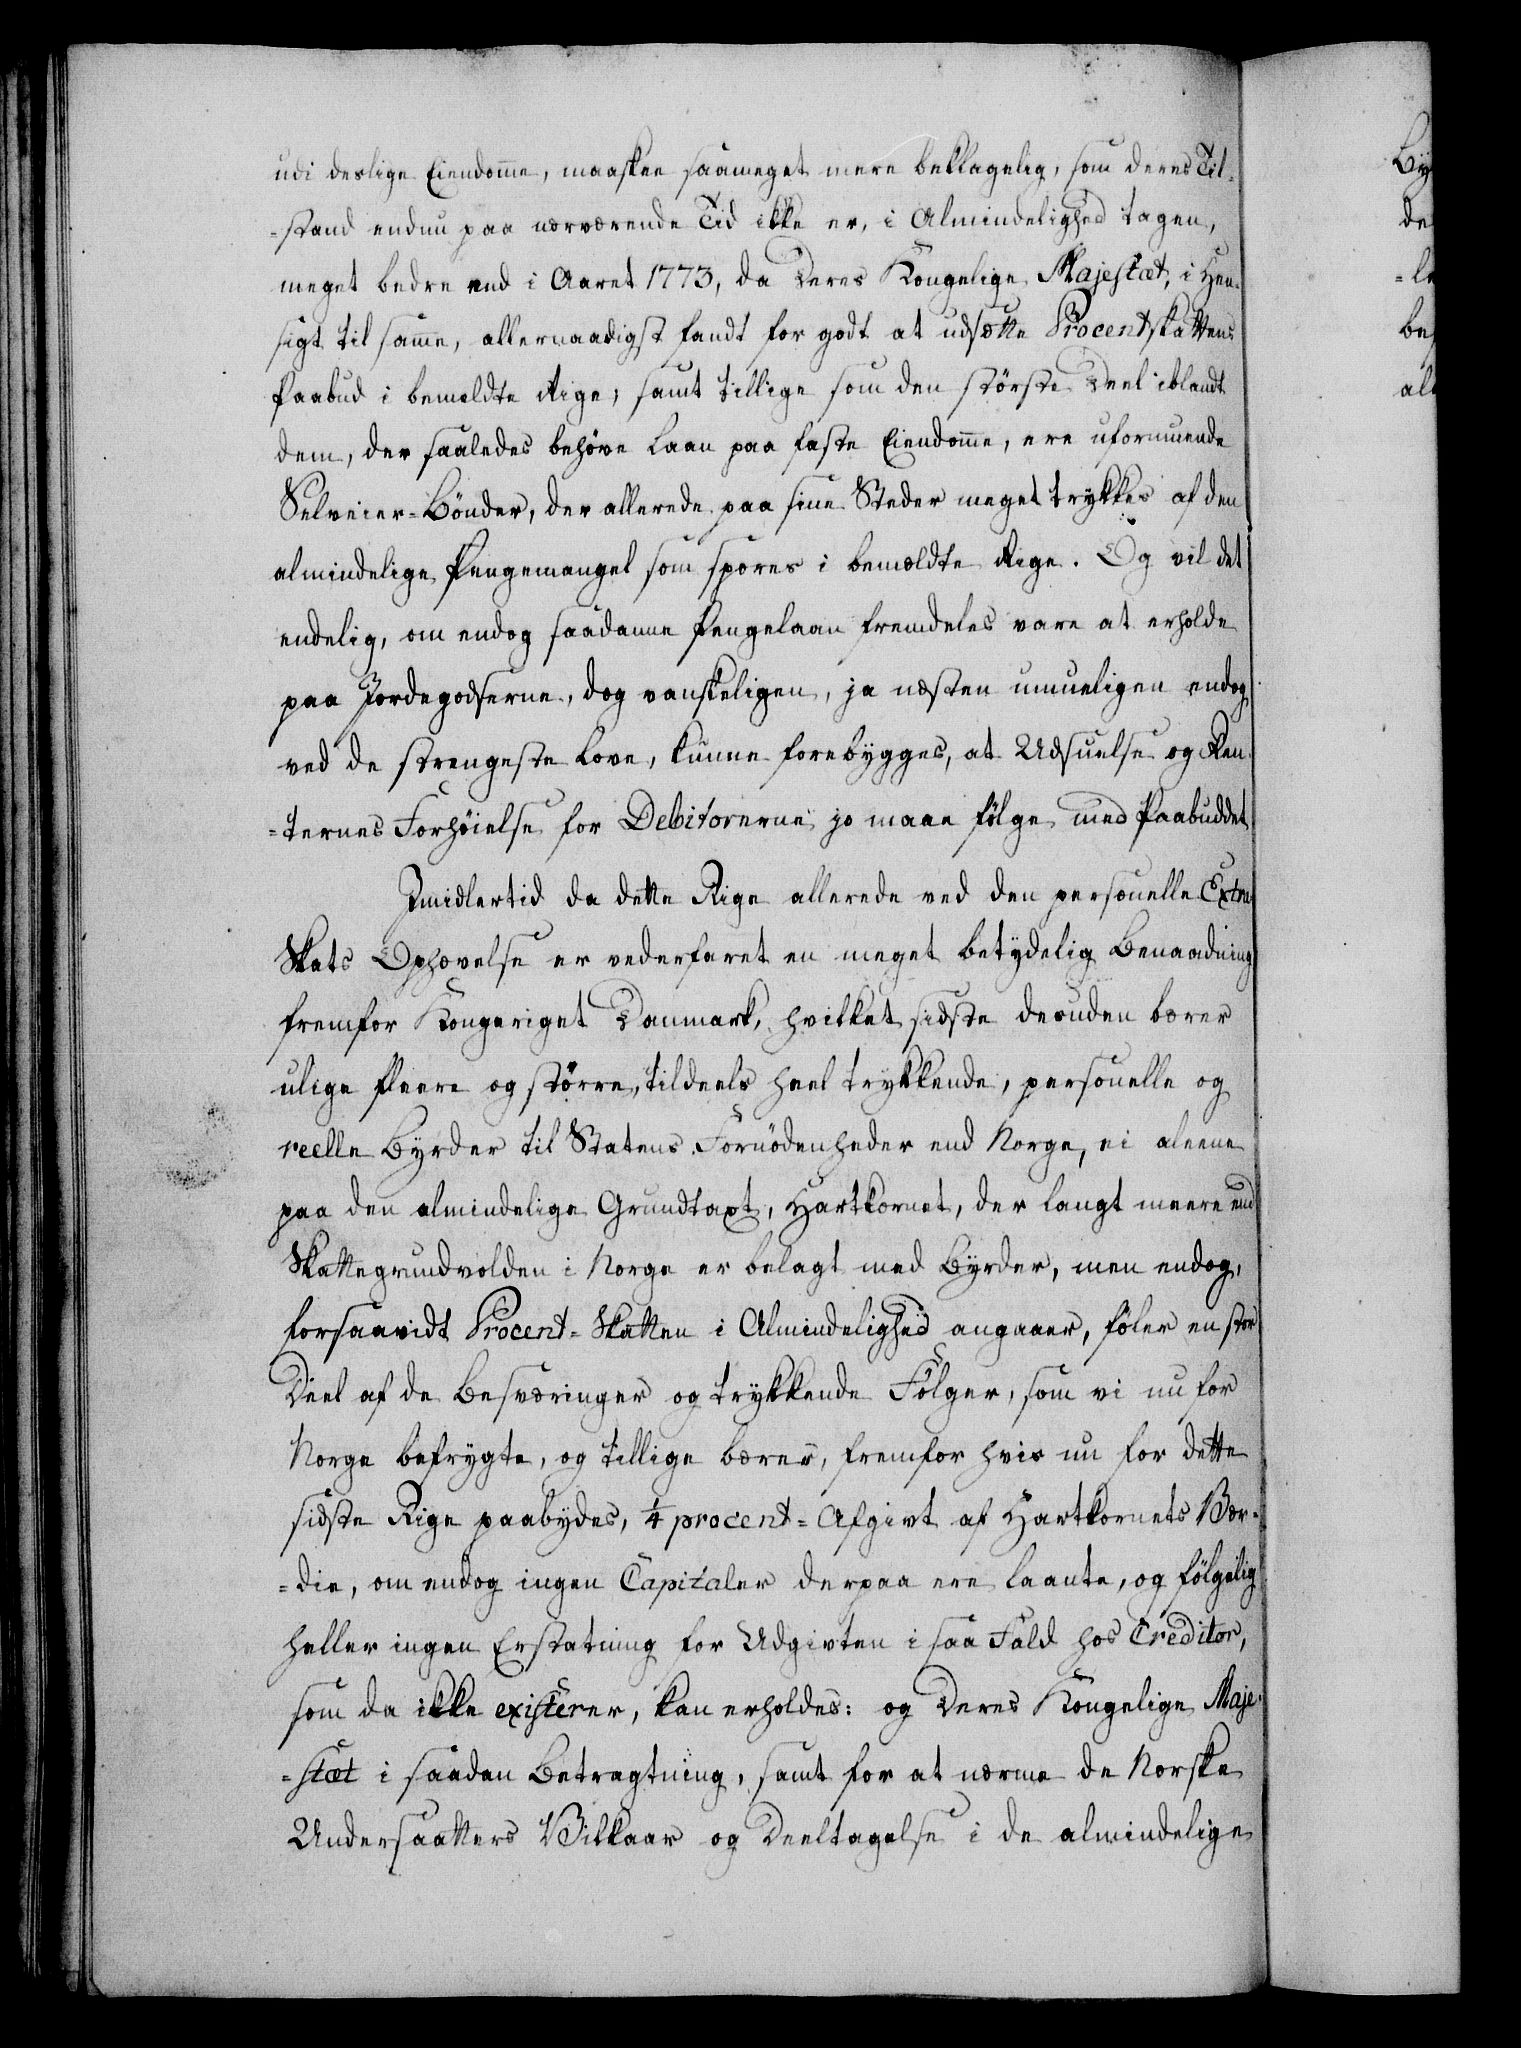 udi deslige Eiendomme, maaskee saameget mere beklagelig, som deres Til-
-stand endnu paa nærværende Tid ikke er, i Almindelighed tagen,
meget bedre end i Aaret 1773, da Deres Kongelige Majestæt, i Hen-
sigt til samme, allernaadigst fandt for godt at udsætte Procentskattens
Paabud i bemeldte Rige; samt tillige som den störste Deel iblandt
dem, der saaledes behöve Laan paa faste Eiendomme, ere uformuende
Selveier-Bönder, der allerede paa sine Steder meget trykkes af den
almindelige Pengemangel som spores i bemældte Rige. Og vil det
endelig, om endog saadanne Pengelaan fremdeles vare at erholde
paa Jordegodserne, dog vanskeligen, ja næsten umueligen endog
ved de strengeste Love, kunne forebygges, at Udsuelse og Ren-
-ternes Forhöielse for Debitorerne jo maae fölge med Paabuddet
Imidlertid da dette Rige allerede ved den personelle Extra
Skats Ophævelse er vederfaret en meget betydelig Benaadning
fremfor Kongeriget Danmark, hvilket sidste desuden bærer
ulige fleere og större, tildeels heel trykkende, personelle og
reelle Byrder til Statens Fornödenheder end Norge, ei aleene
paa den almindelige Grundtaxt, Hartkornet, der langt meere end
Skattegrundvolden i Norge er belagt med Byrder, men endog,
forsaavidt Procent-Skatten i Almindelighed angaaer, föler en stor
Deel af de Besværinger og trykkende Fölger, som vi nu for
Norge befrygte, og tillige bærer, fremfor hvis nu for dette
sidste Rige paabydes, 1/4 procent-Afgivt af Hartkornets Vær-
-die, om endog ingen Capitaler derpaa ere laante, og fölgelig
heller ingen Erstatning for Udgivten i saa Fald hos Creditor,
som da ikke existerer, kan erholdes: og Deres Kongelige Maje-
-stæt i saadan Betragtning, samt for at nærme de Norske
Undersaatters Vilkaar og Deeltagelse i de almindelige
By
de
-le
be
al